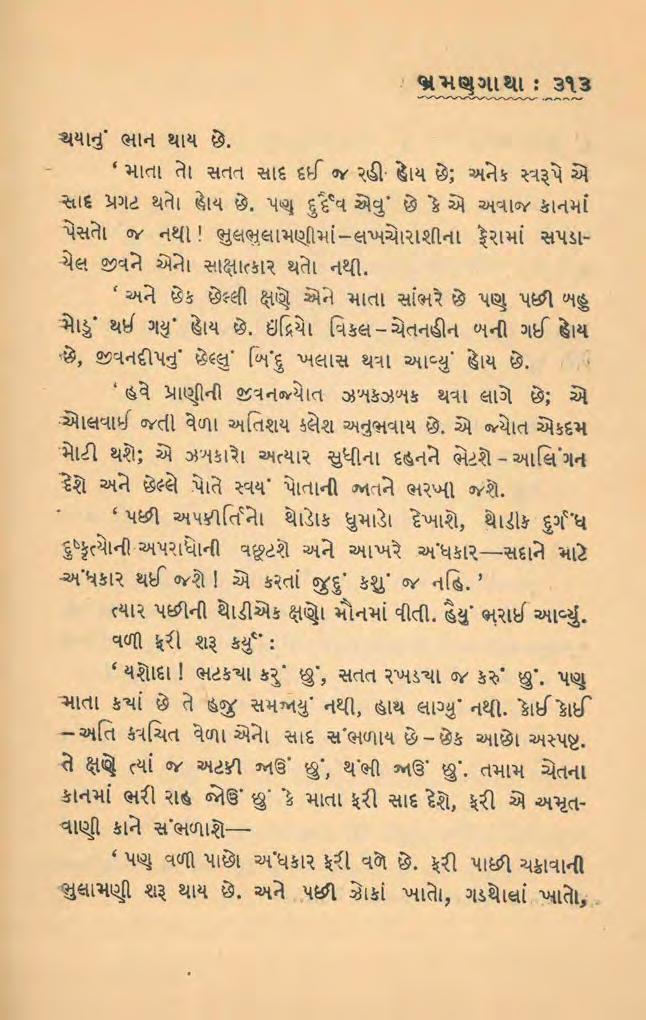 ભ્રમણગાથા : ૩૧૩
થયાનું ભાન થાય છે.
‘ માતા તો સતત સાદ દઈ જ રહી હોય છે; અનેક સ્વરૂપે એ
સાદ પ્રગટ થતો હોય છે. પણ દુર્દૈવ એવું છે કે એ અવાજ કાનમાં
પેસતો જ નથી ! ભુલભુલામણીમાં–લખચોરાશીના ફેરામાં સપડા-
યેલ જીવને એનો સાક્ષાત્કાર થતો નથી.
‘ અને છેક છેલ્લી ક્ષણે એને માતા સાંભરે છે પણ પછી બહુ
મોડું થઈ ગયું હોય છે. ઇંદ્રિયો વિકલ – ચેતનહીન બની ગઈ હોય
છે, જીવનદીપનું છેલ્લું બિંદુ ખલાસ થવા આવ્યું હોય છે.
‘ હવે પ્રાણીની જીવનજ્યોત ઝબકઝબક થવા લાગે છે; એ
ઓલવાઈ જતી વેળા અતિશય કલેશ અનુભવાય છે. એ જ્યોત એકદમ
મોટી થશે; એ ઝબકારો અત્યાર સુધીના દહનને ભેટશે – આલિંગન
દેશે અને છેલ્લે પોતે સ્વયં પોતાની જાતને ભરખી જશે.
‘ પછી અપકીર્તિનો થોડોક ધુમાડો દેખાશે, થોડીક દુર્ગંધ
દુષ્કૃત્યોની અપરાધોની વછૂટશે અને આખરે અંધકાર—સદાને માટે
અંધકાર થઈ જશે ! એ કરતાં જુદું કશું જ નહિ. ’
ત્યાર પછીની થોડીએક ક્ષણો મૌનમાં વીતી. હૈયું ભરાઈ આવ્યું.
વળી ફરી શરૂ કર્યું :
‘ યશોદા ! ભટકયા કરું છું, સતત રખડયા જ કરું છું. પણ
માતા કયાં છે તે હજુ સમજાયું નથી, હાથ લાગ્યું નથી. કોઈ કોઈ
– અતિ કવચિત વેળા એનો સાદ સંભળાય છે – છેક આછો અસ્પષ્ટ.
તે ક્ષણે ત્યાં જ અટકી જાઉં છું, થંભી જાઉં છું. તમામ ચેતના
કાનમાં ભરી રાહ જોઉં છું કે માતા ફરી સાદ દેશે, ફરી એ અમૃત-
વાણી કાને સંભળાશે—
‘ પણ વળી પાછો અંધકાર ફરી વળે છે. ફરી પાછી ચક્રાવાની
ભુલામણી શરૂ થાય છે. અને પછી ઝોકાં ખાતો, ગડથોલાં ખાતો,